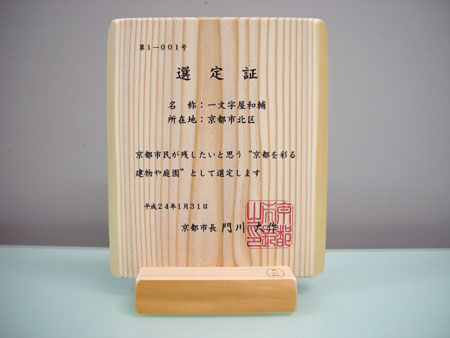 第1－001号
選定証
名称：一文字屋和輔
所在地：京都市北区
京都市民が残したいと思う“京都を彩る
建物や庭園”として選定します
平成24年1月31日
京都市長 門川大作